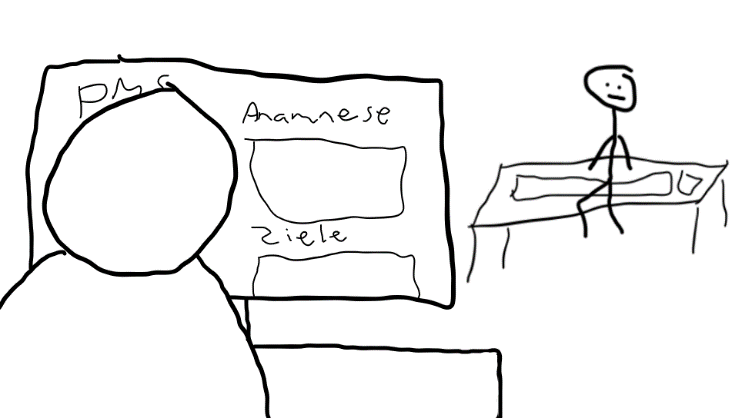 Anamnese
Ziele